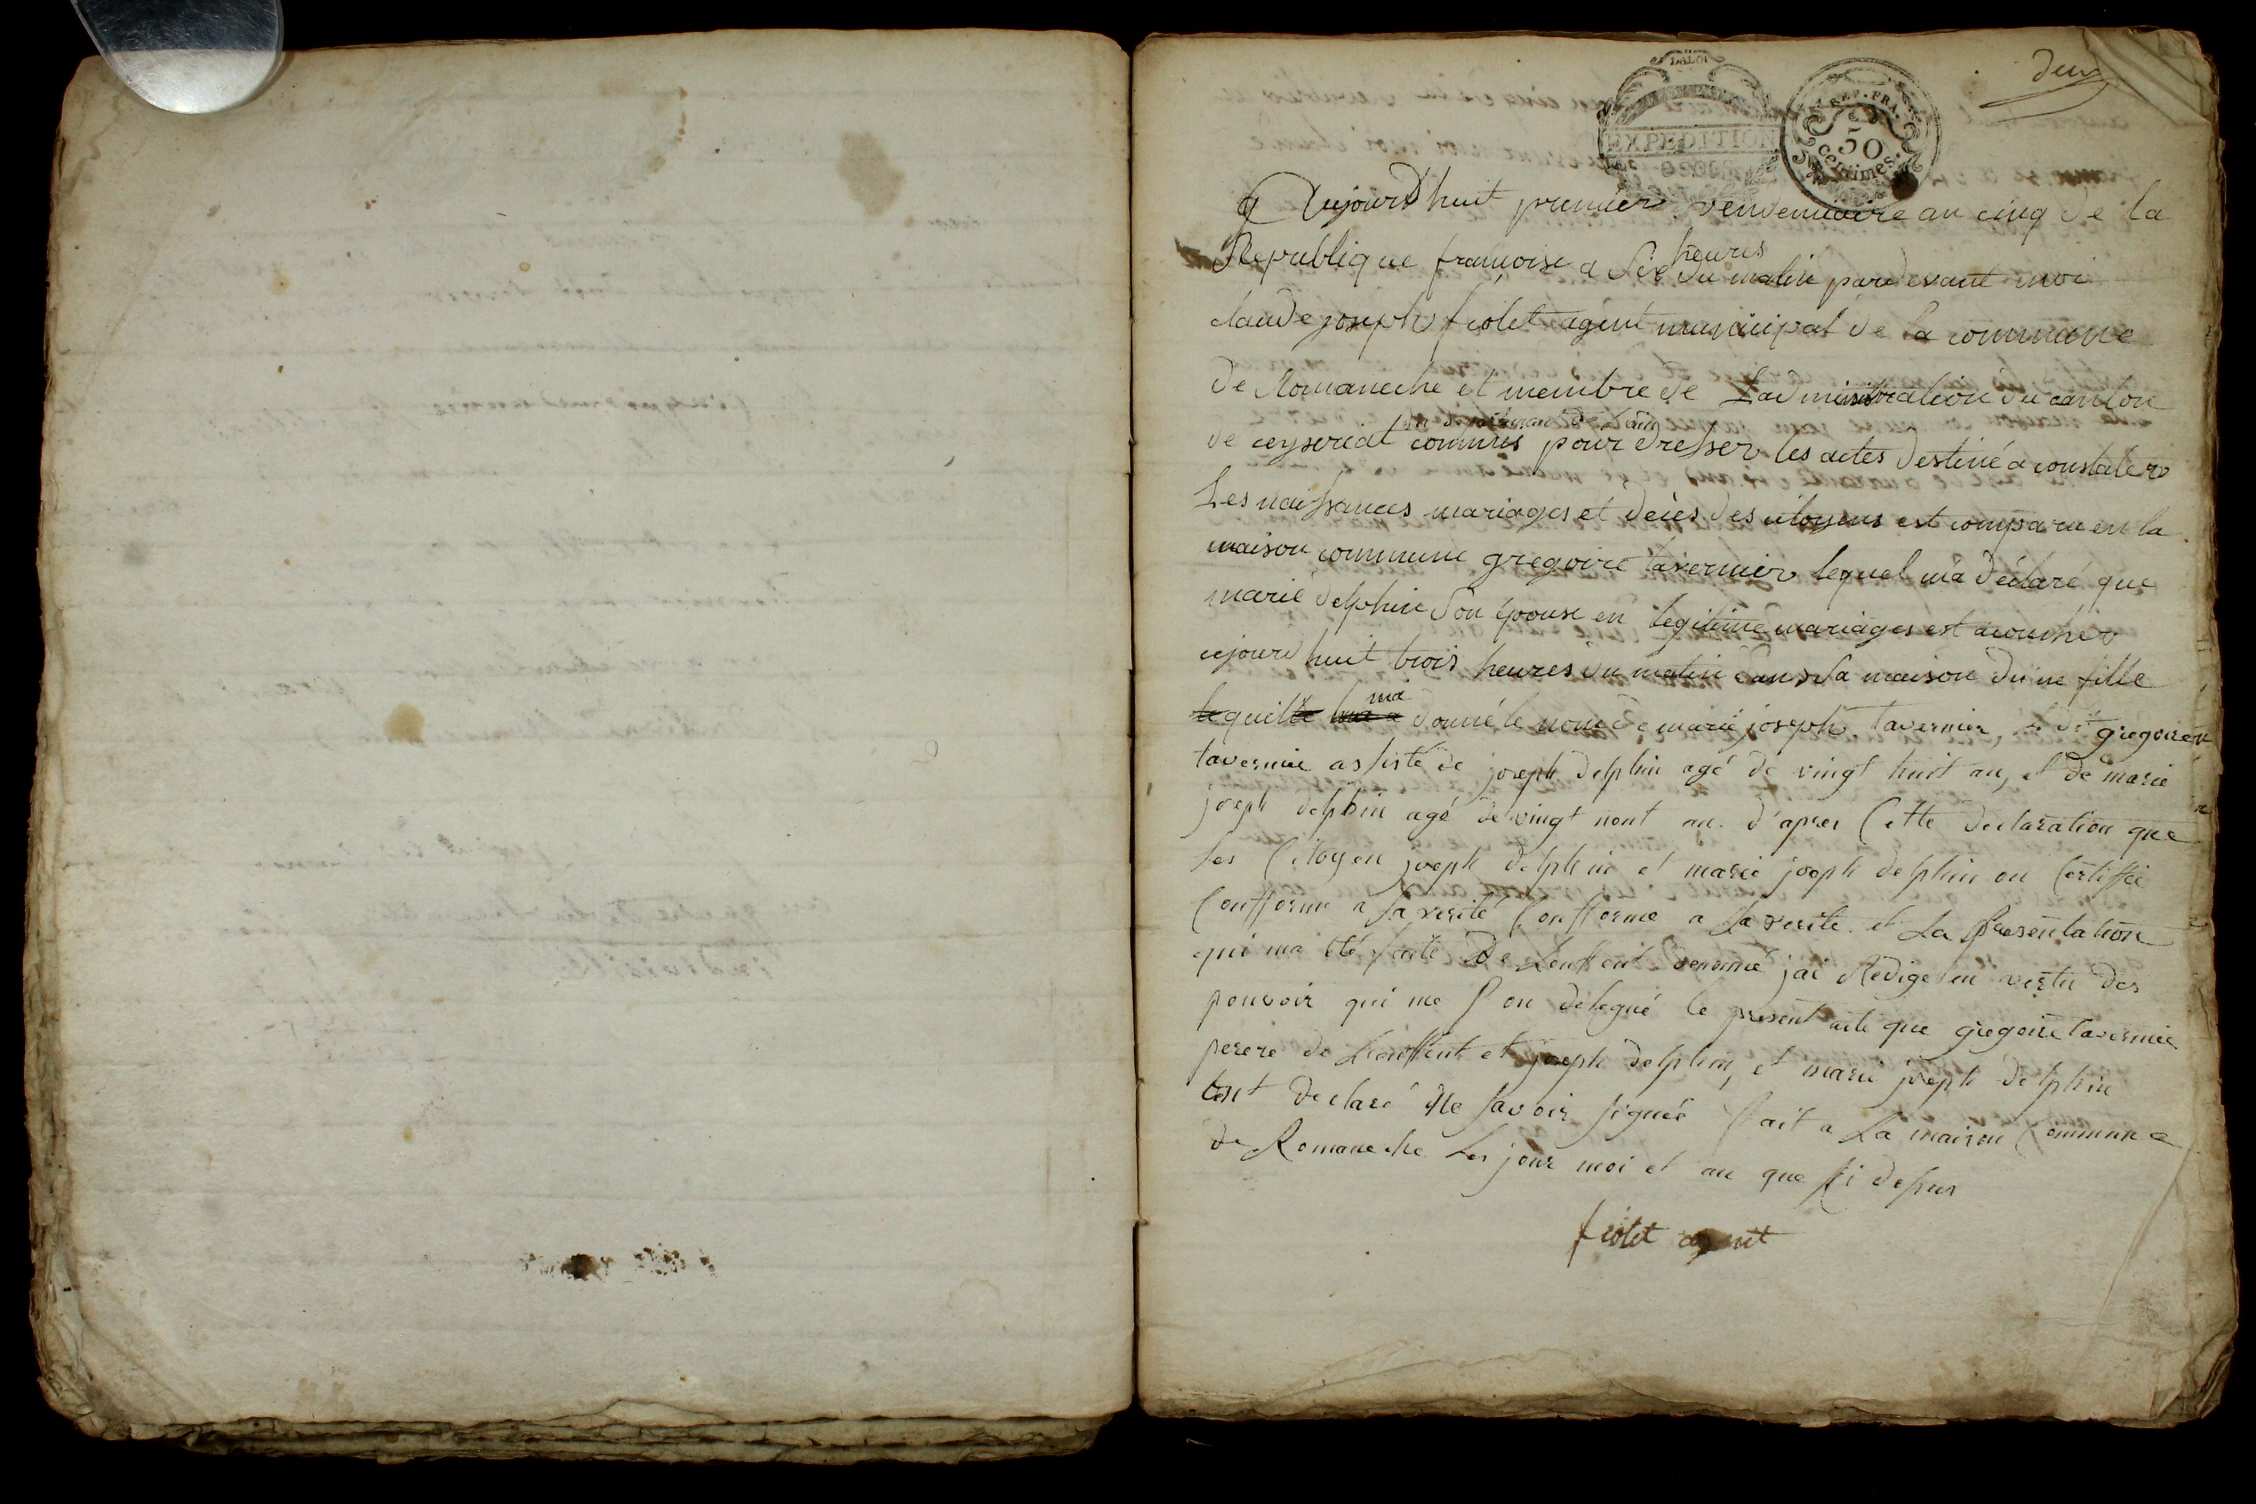 deux
DALOI
EXPEDITION
REP. FRA.
50
centimes.
Aujourdhuit premier vendemiaire an cinq de la
Republique françoise a Six heures du matin pardevant moi
claude joseph fiolet agent municipal de la commune
de Romaneche et membre de Ladministration du canton
de ceyseriat commis pour dresser les actes destiné a constater
Les naissances mariages et decès des citoyens est comparu en la
maison commune gregoire tavernier lequel ma déclaré que
marie delphin Son épouse en legitime mariages est acoucher
ajourdhuit trois heures du matin dans Sa maison dune fille
ma donné le nom de marie joseph tavernier, gregoire
tavernie assisté de joseph delphin agé de vingt huit an, et de marie
joseph delphin agé de vingt nont an. d'apres Cette declaration que
les Citoyen joseph delphin et marie joseph delphin on Certiffié
Confforme a la verité Conforme a La verite et La presentation
qui ma été faite de Lenffent denomé jai Redigé en vertu des
pouvoir qui me Son delegué le present acte que gregoire tavernie
perere de Lenffent et joseph delphin, et marie joseph delphin
tont declaré Ne savoir signée ffait a La maison Commune
de Romaneche Les jour moi et an que Si dessus
fiolet agent